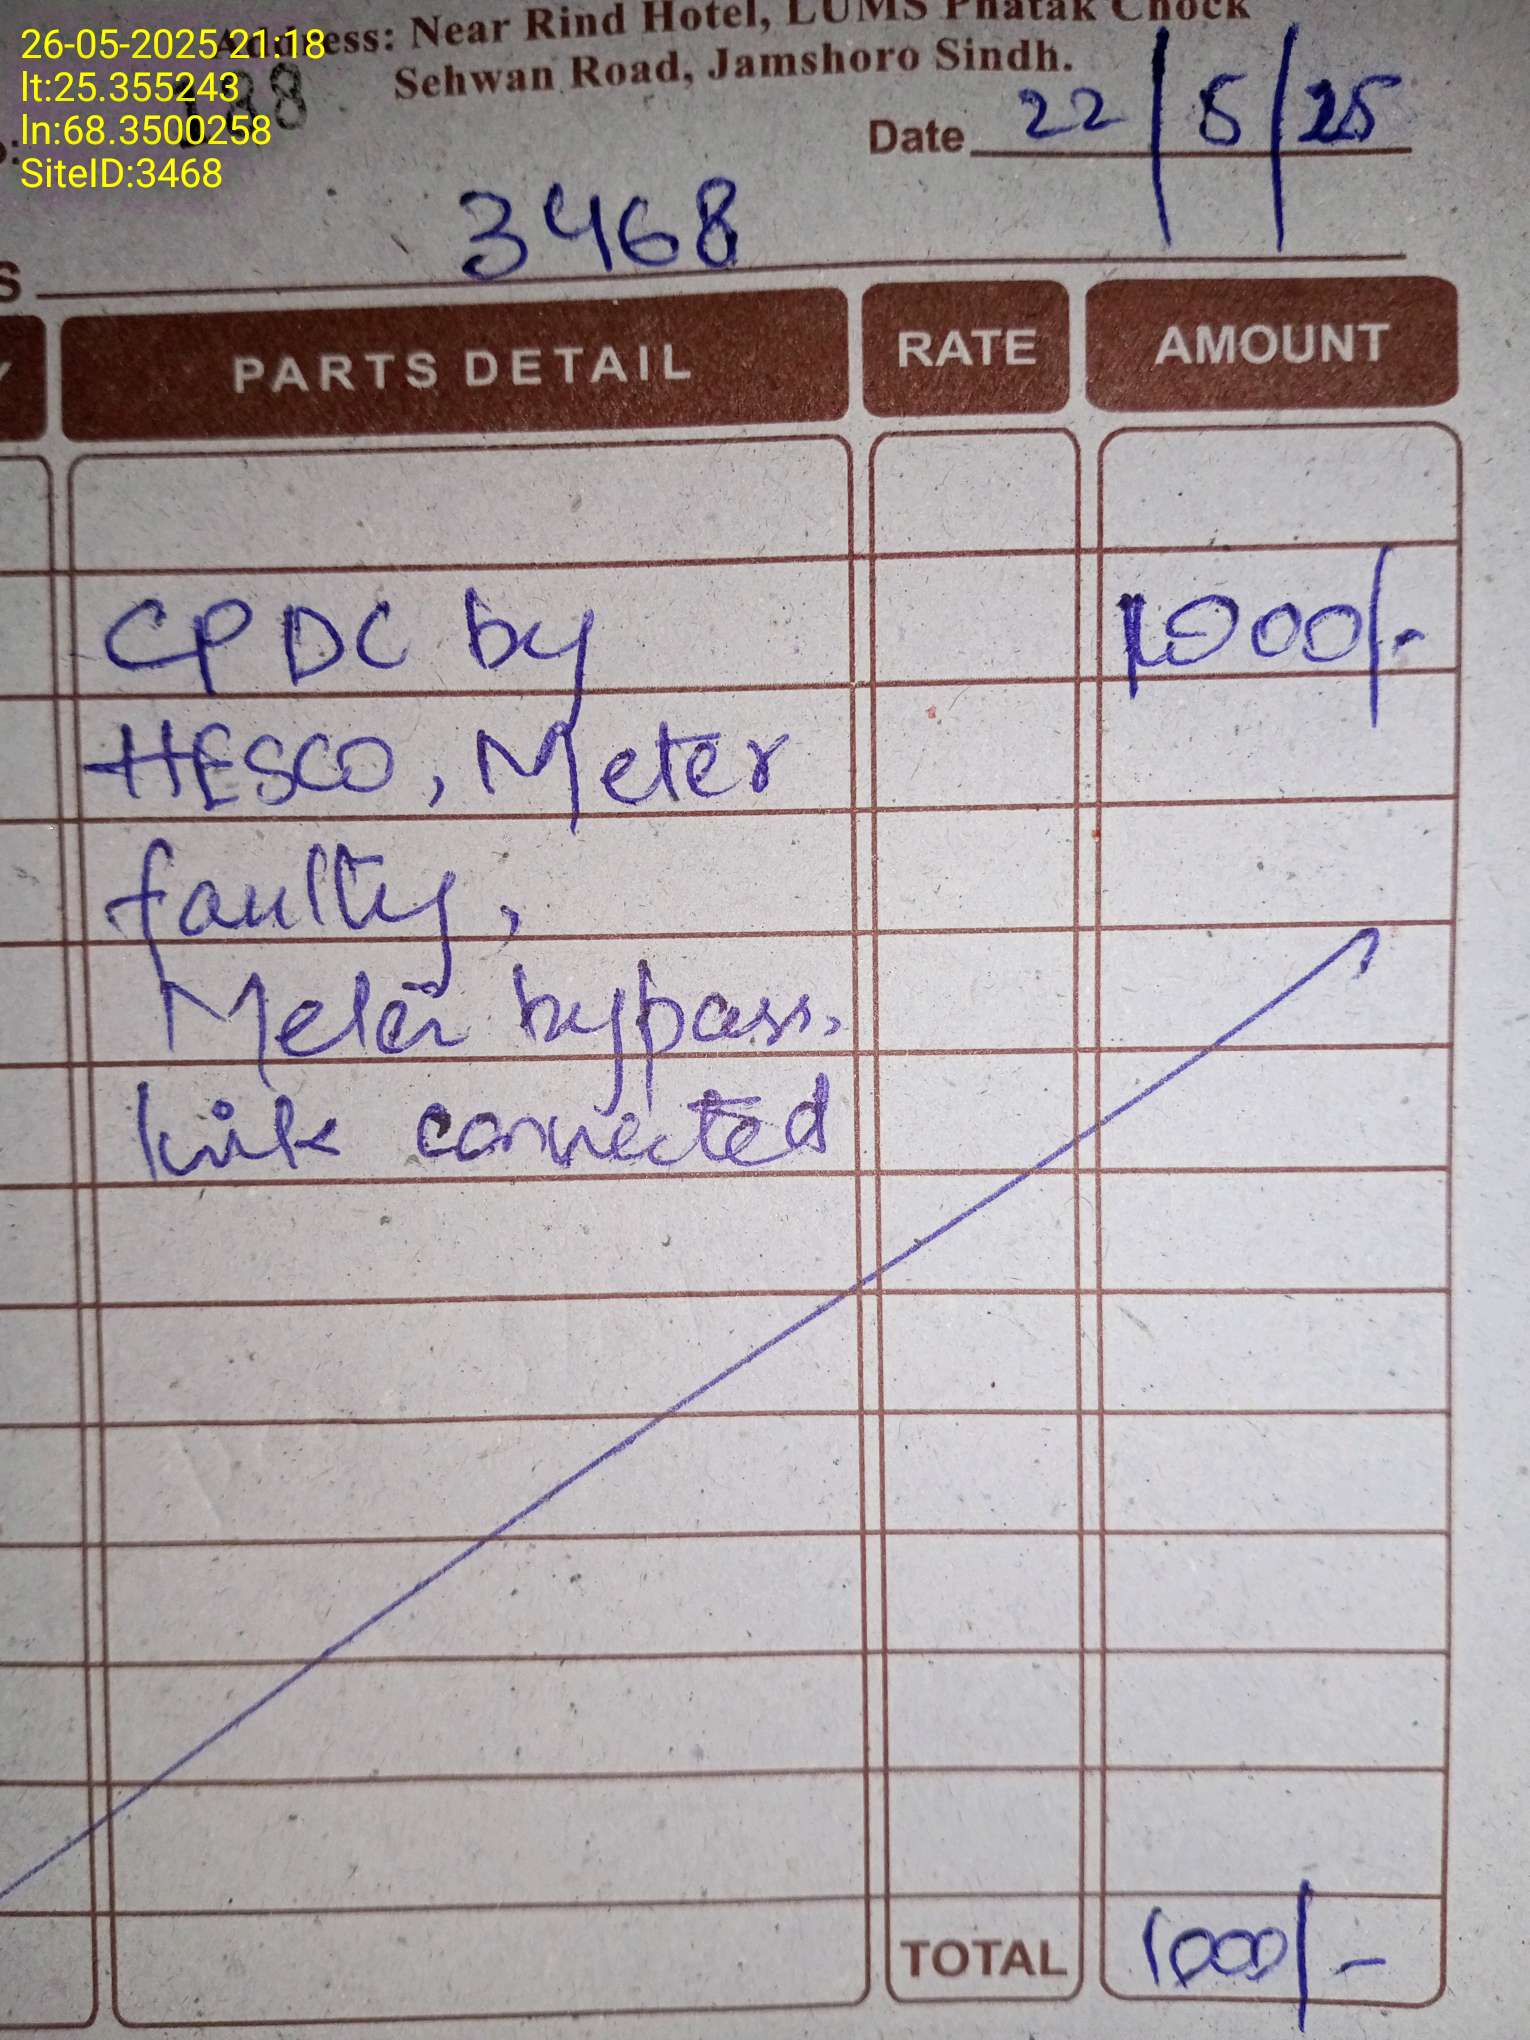 26-05-2025 21:18
lt:25.355243
ln:68.3500258
SiteID:3468
Address: Near Rind Hotel, LUMS Phatak Chock
Sehwan Road, Jamshoro Sindh.
188
Date 22/5/25
S 3468
PARTS DETAIL RATE AMOUNT
CPDC by 1000/-
HESCO, Meter
faulty,
Meter bypass.
link connected
TOTAL 1000/-